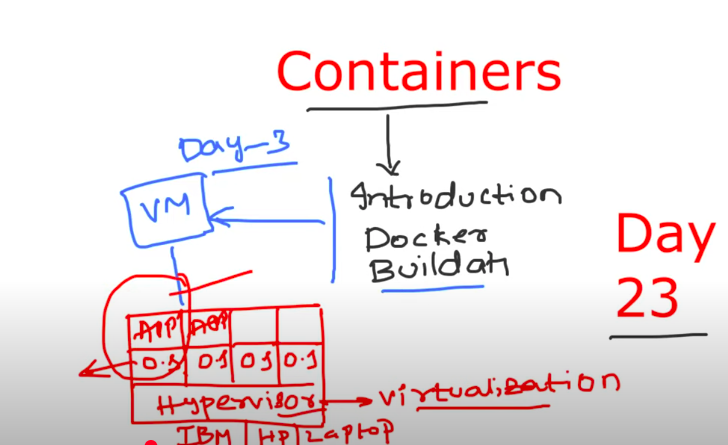 Containers
Day-3
VM
Introduction
Docker
Buildah
Day
23
APP APP
O.S O.S O.S O.S
Hypervisor
virtualization
IBM HP Laptop